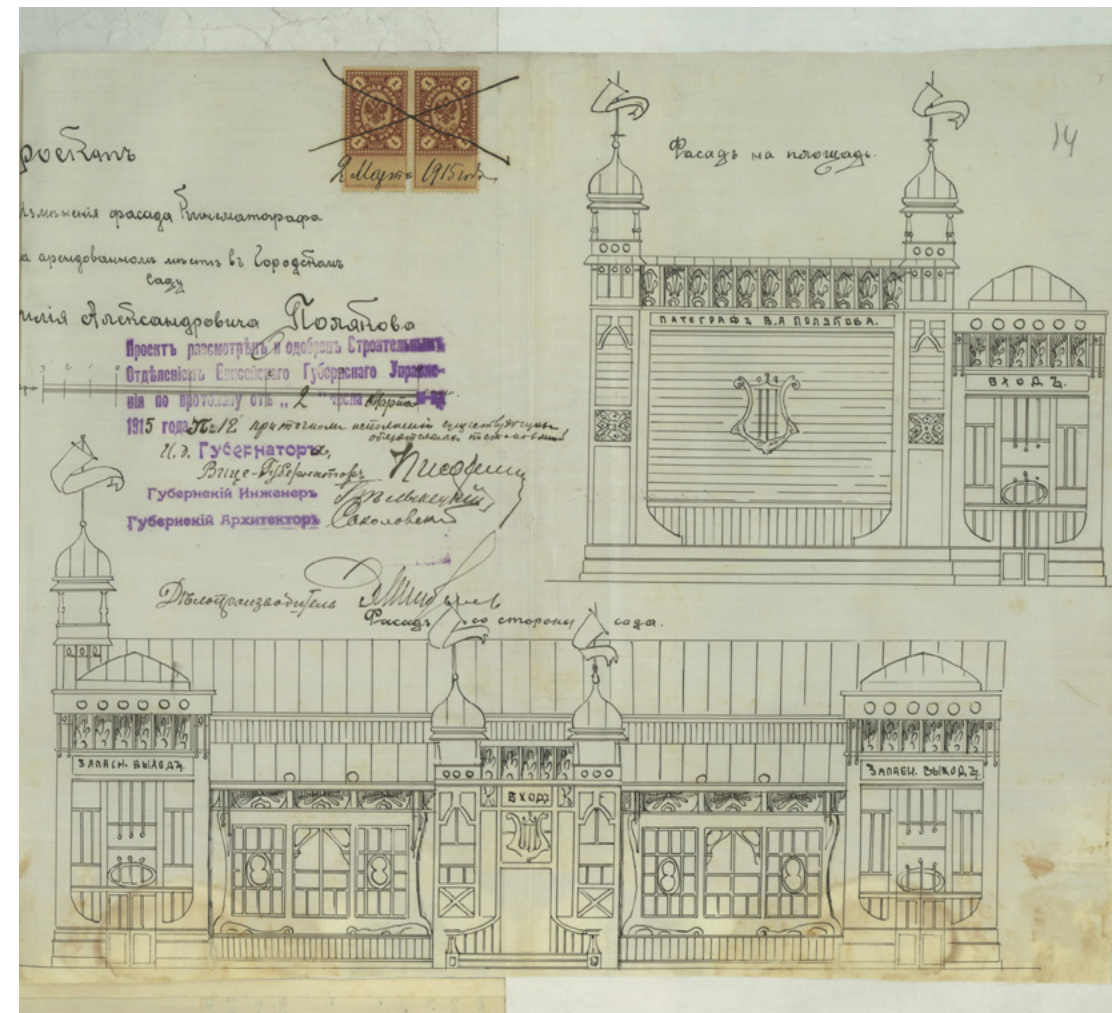 роектъ
измѣненія фасада Кинематографа
а арендованномъ мѣстѣ въ Городскомъ
саду
илія Александровича Полякова
2 Марта 1915 года
Проектъ разсмотрѣнъ и одобренъ Строительнымъ
Отдѣленіемъ Енисейскаго Губернскаго Управле-
нія по протоколу отъ „ 2 " числа Марта
1915 года № 12 при точномъ исполненіи существующихъ
И. д. Губернатора,
Вице-Губернаторъ
Губернскій Инженеръ
Губернскій Архитекторъ Соколовскій
Дѣлопроизводитель
Фасадъ на площадь.
14
ПАТЕГРАФЪ В.А ПОЛЯКОВА.
ВХОДЪ.
Фасадъ со стороны сада.
ЗАПАСН. ВЫХОДЪ.
ВХОДЪ
ЗАПАСН. ВЫХОДЪ.